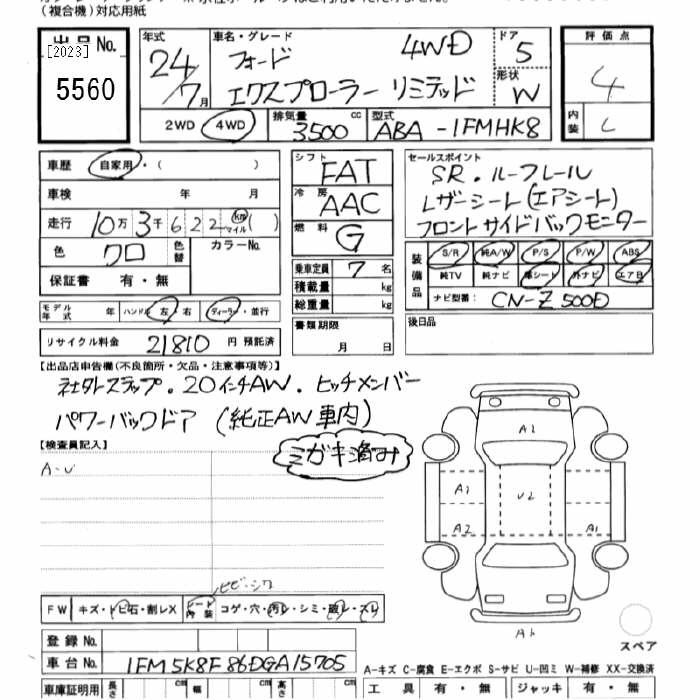 (複合機)対応用紙
出品No.
[2023]
5560
年式
24/7月
車名・グレード
フォード 4WD
エクスプローラー リミテッド
ドア 5
形状 W
評価点
4
内装 C
2WD 4WD
排気量 3500 cc
型式 ABA-1FMHK8
車歴 自家用・( )
車検 年 月
走行 10万3千622 km マイル ( )
色 クロ 色替 カラーNo.
保証書 有・無
シフト FAT
冷房 AAC
燃料 G
乗車定員 7名
積載量 kg
総重量 kg
セールスポイント
SR・ルーフレール
レザーシート(エアシート)
フロントサイドバックモニター
装備品
S/R 純A/W P/S P/W ABS
純TV 純ナビ 革シート 外ナビ エアB
ナビ型番: CN-Z500D
モデル年式 年 ハンドル 左・右 ディーラー・並行
リサイクル料金 21810 円 預託済
書類期限
月 日
後日品
【出品店申告欄(不良箇所・欠品・注意事項等)】
社外マフラー・20インチAW・ヒッチメンバー
パワーバックドア (純正AW車内)
【検査員記入】
ミガキ済み
A-U
A1
A1
U2
A2
A1
A1
ヒビ・シワ
FW キズ・トビ石・割レX シート内装 コゲ・穴・汚レ・シミ・破レ・スレ
登録No.
車台No. 1FM5K8F86DGA15705
スペア
A-キズ C-腐食 E-エクボ S-サビ U-凹ミ W-補修 XX-交換済
車庫証明用 長さ cm 幅 cm 高さ cm
工具 有・無 ジャッキ 有・無